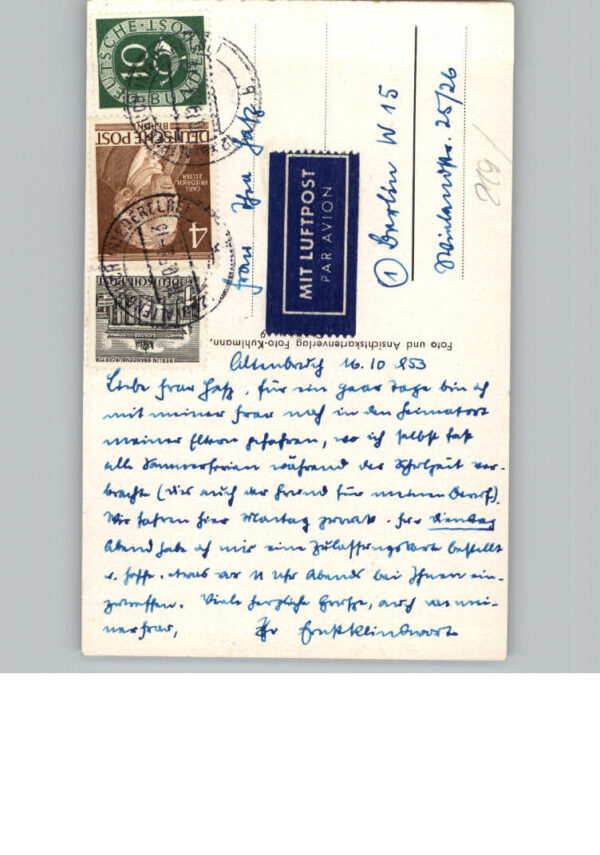 DEUTSCHE BUNDESPOST
10
DEUTSCHE POST
BERLIN
CARL
FRIEDRICH
ZELTER
4
DEUTSCHE POST
MIT LUFTPOST
PAR AVION
Frau
① Berlin W 15
25/26
219/
Foto und Ansichtskartenverlag Foto-Kuhlmann,
Altenbruch 16.10.1953
Liebe Frau für ein paar Tage bin ich
mit meiner Frau nach in den Heimatort
meiner Eltern gefahren, wo ich selbst fast
alle Sommerferien während der Schulzeit ver-
brachte (dies auch der Grund für meinen Beruf).
Wir fahren hier Montag zurück. Für Dienstag
Abend habe ich mir eine Zulassungskarte bestellt
u. hoffe, etwas vor 11 Uhr Abends bei Ihnen ein-
zutreffen. Viele herzliche Grüße, auch von mei-
ner Frau, Ihr Ernst Klinkwort